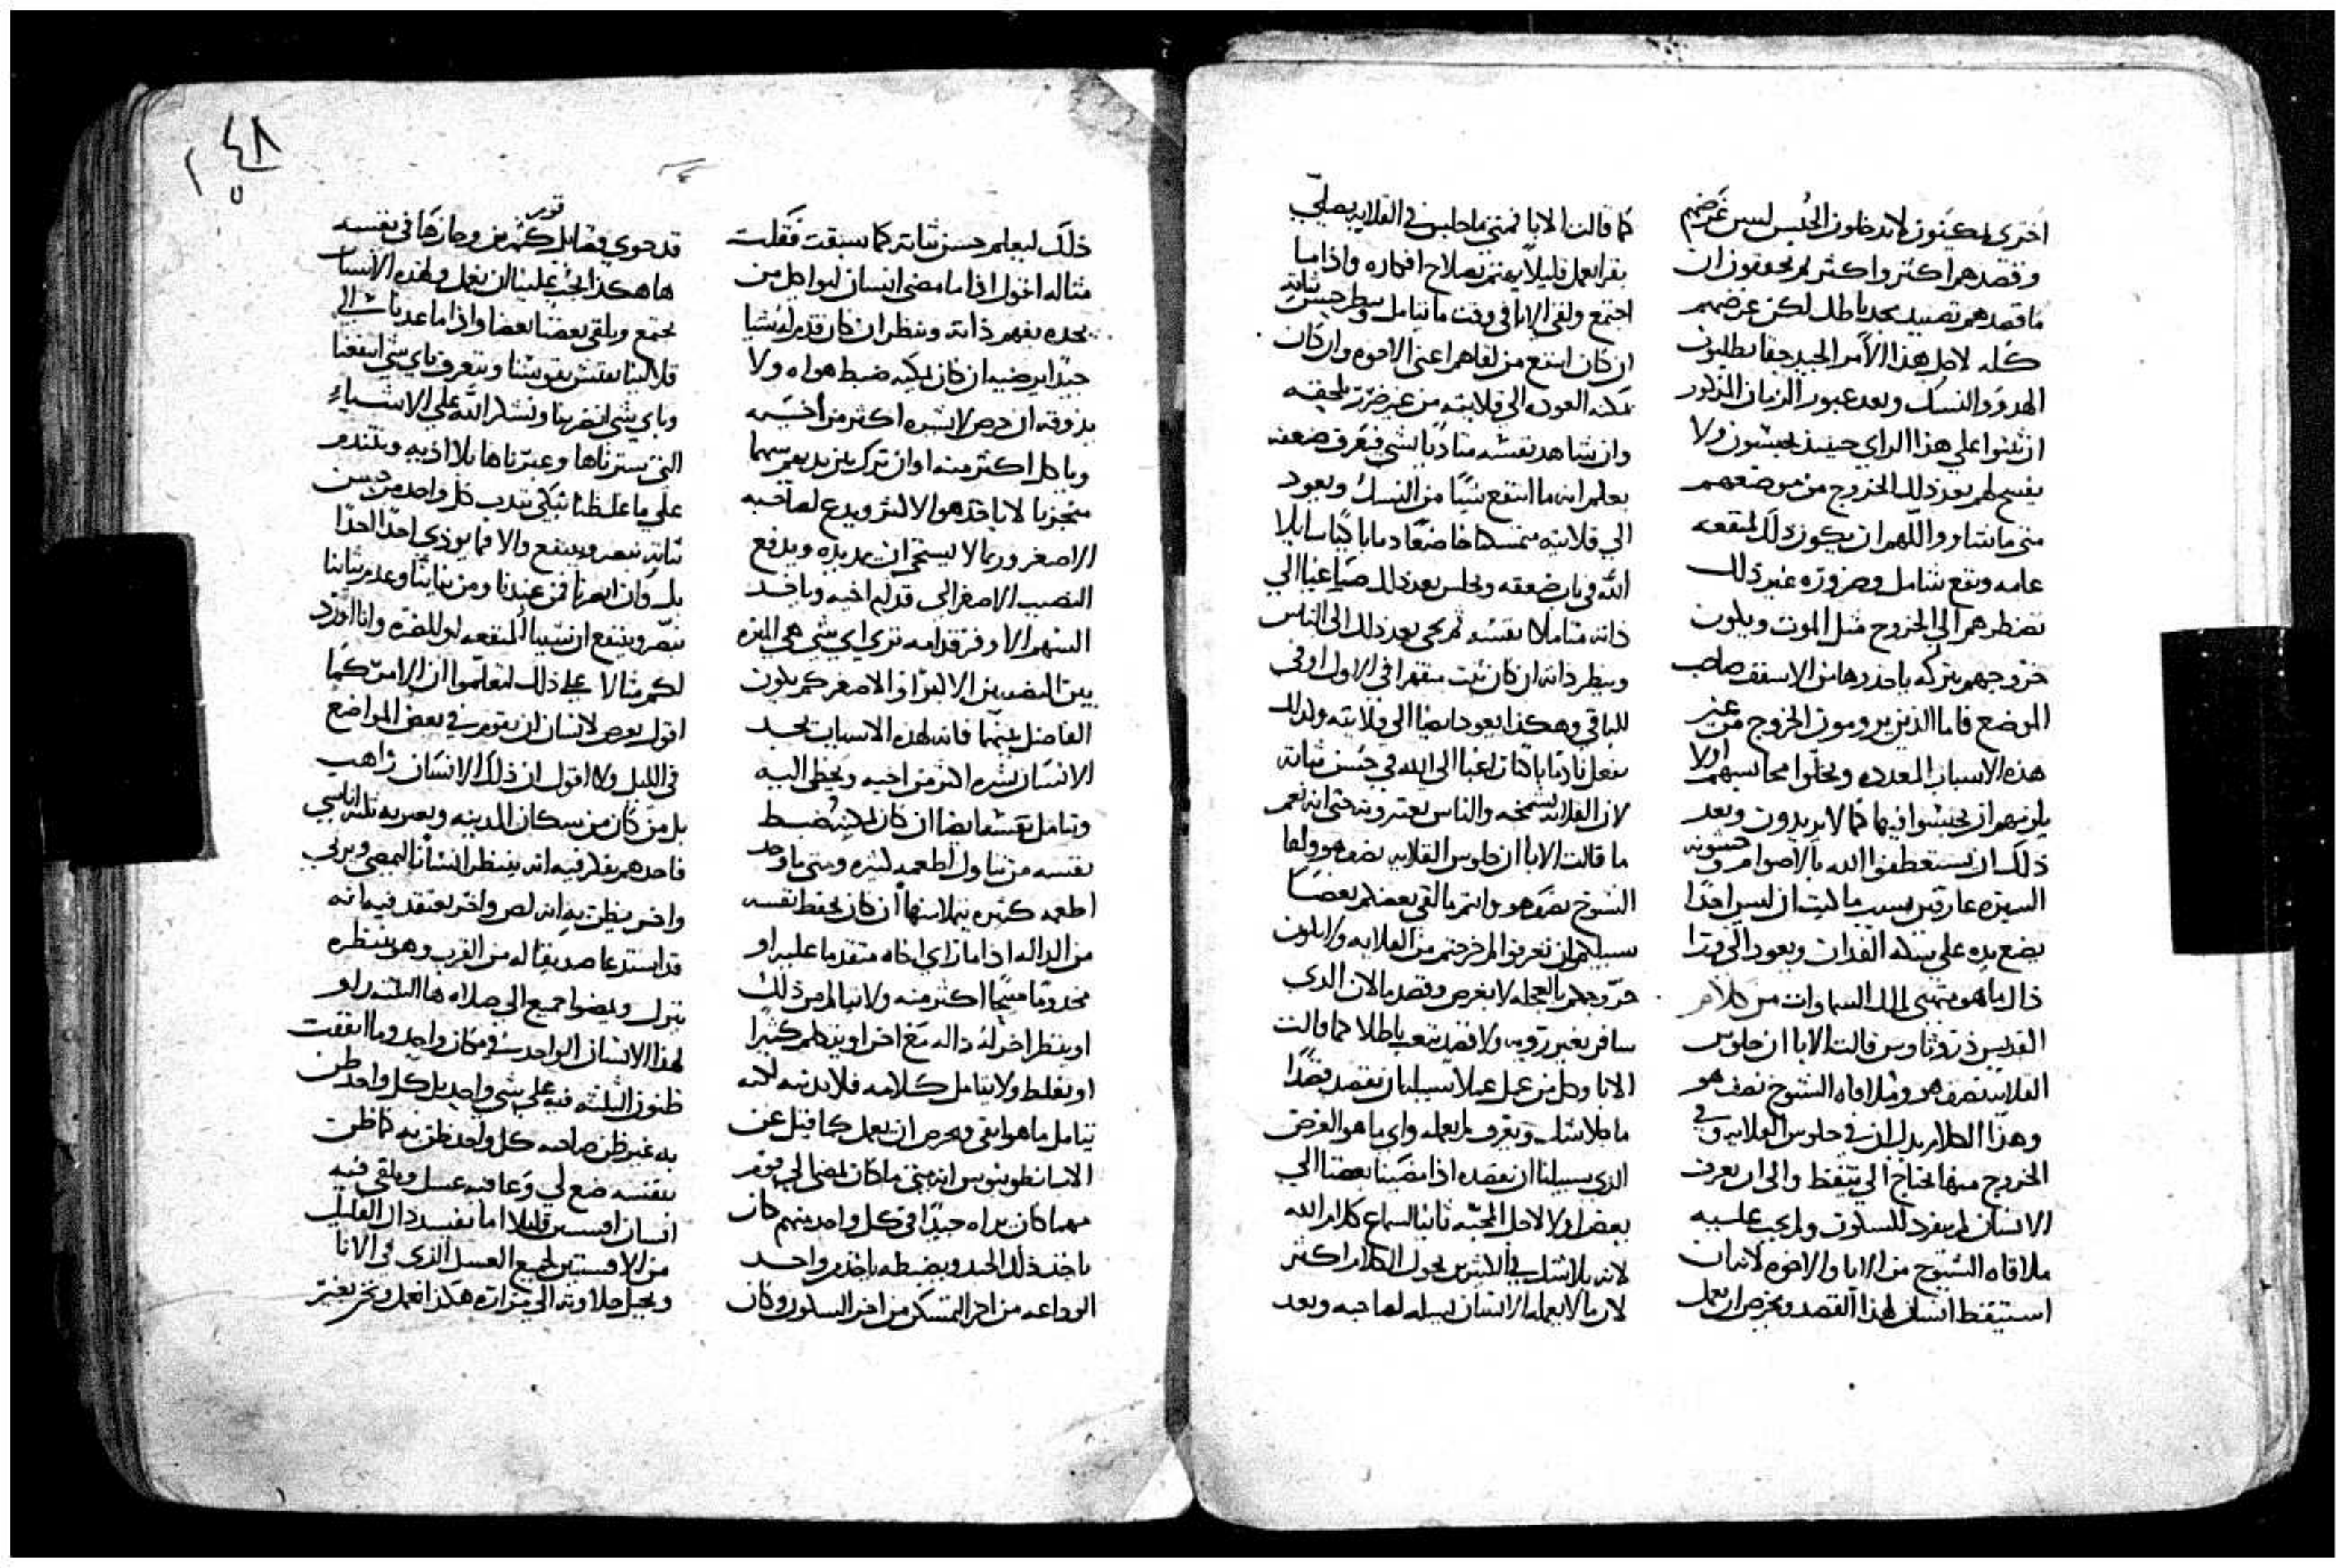 اخرى لم يكينون لا يدخلون الحبس ليس غرضهم
وقصدهم اكثر واكثر لم يحققون ان
ما قصدهم تصيد مجد باطل لكن غرضهم
كله لاجل هذا الامر الجيد حقا يطلبون
الهدوو والنسك وبعد عبور الزمان المذكور
ان ثبتوا على هذا الراي حينيذ يحبسون ولا
يفسح لهم بعد ذلك الخروج من موضعهم
متى ما شاووا اللهم ان يكون ذلك لمنفعه
عامه ونفع شامل وضروره غير ذلك
تضطرهم الى الخروج مثل الموت ويكون
خروجهم ببركه ياخدوها من الاسقف صاحب
الموضع فاما الذين يرومون الخروج من غير
هذه الاسباب المعدده ويخلوا محابسهم اولا
يلزمهم ان يحبسوا فيها كما لا يريدون وبعد
ذلك ان يستعطفوا الله بالاصوام وخشونه
السيره عارفين بسبب ما كتب ان ليس احدا
يضع يده على سكه الفدان ويعود الى ورا
ذاك ما هو متهيى لملك السماوات من كلام
القديس دوروثاوس قالت الابا ان جلوس
القلايه نصف هو وملاقاه الشيوخ نصف هو
وهذا الكلام يدل ان في جلوس القلايه وفي
الخروج منها نحتاج الى تيقظ والى ان يعرف
الانسان لم ينفرد للسكون ولم يجب عليه
ملاقاه الشيوخ من الابا والاخوه لان ان
استيقظ انسان لهذا القصد ويحرص ان يعمل
كما قالت الابا فمتى ما جلس في القلايه يصلي
يقرا يعمل قليلا يهتم بصلاح افكاره واذا ما
اجتمع ولقى الابا في وقت ما يتامل وينظر حسن ثباته
ان كان انتفع من لقاهم اعني الاخوه وان كان
يمكنه العوده الى قلايته من غير ضرر يلحقه
وان شاهد نفسه متاديا بشي فيعرف ضعفه
يعلم انه ما انتفع شيا من النسك ويعود
الى قلايته متمسكنا خاضعا نادما باكيا سايلا
الله في باب ضعفه ويجلس بعد ذلك صاغيا الى
ذاته متاملا نفسه ثم يجى بعد ذلك الى الناس
وينظر ذاته ان كان ثبت منقهرا في الاول او في
الباقي وهكذا يعود ايضا الى قلايته وكذلك
يفعل نادما باكيا راغبا الى الله في حسن ثباته
لان القلايه تشمخه والناس يعتبرونه حتى انه نعم
ما قالت الابا ان جلوس القلايه نصف هو ولقا
الشيوخ نصف هو وانتم بالقي بعضكم بعضا
سبيلكم ان تعرفوا لم خرجتم من القلايه ولا يكون
خروجكم بالعجله لا بغرض وقصد ما لان الذي
سافر بغير رويه ولا قصد يتعب باطلا كما قالت
الابا وكل من عمل عملا سبيله ان يقصد قصدا
ما بلا شك ويعرف لم يعمله واي ما هو الغرض
الذي سبيلنا ان نقصده اذا مضينا بعضنا الى
بعض اولا لاجل المحبه ثانيا لسماع كلام الله
لانه بلا شك في الكثيرين يحول الكلام اكثر
لان ما لا يعمله الانسان يسله لصاحبه وبعد
ذلك ليعلم حسن ثباته كما سبقت فقلت
مثاله اقول اذا ما مضى انسان ليواكل من
يجده يفهم ذاته وينظر ان كان قدم له شيا
جيدا يرضيه ان كان يمكنه ضبط هواه ولا
يذوقه ان حرص لا يشره اكثر من اخيه
وياكل اكثر منه او ان ترك بين يديهم سهما
متجزيا لا ياخذ هو الاكثر ويدع لصاحبه
الاصغر وربما لا يستحى ان يمد يده ويدفع
النصيب الاصغر الى قدام اخيه وياخد
السهم الاوفر قدامه ترى اي شي هي الميزه
بين النصيبين الاكبر او الاصغر كم يكون
الفاضل بينهما فانه لهذه الاسباب يجد
الانسان يشره اكثر من اخيه ويخطي اليه
ويتامل نفسه ايضا ان كان يمكنه ضبط
نفسه من تناول اطعمه كثيره ومتى ما وجد
اطعمه كثيره يتملا منها ان كان يحفظ نفسه
من الداله اذا ما راى اخاه متقدما عليه او
مخدوما منيحا اكثر منه ولا يتالم من ذلك
او ينظر اخر له داله مع اخر او يتكلم كثيرا
او يغلط ولا يتامل كلامه فلا يدينه لكنه
يتامل ما هو اتقى ويحرص ان يعمل كما قيل عن
الانبا نطونيوس انه متى ما كان يمضي الى قوم
مهما كان يراه جيدا في كل واحد منهم كان
ياخذ ذلك الجيد ويضبطه ياخذ من واحد
الوداعه من اخر التمسكن من اخر السكون وكان
قد حوى فضايل كثيرين قوم وحازها في نفسه
هاهكذا يجب علينا ان نعمل ولهذه الاسباب
نجتمع ويلقى بعضنا بعضا واذا ما عدنا الى
قلالينا نفتش نفوسنا ونتعرف باي شي انتفعنا
وباي شي انضرينا ونشكر الله على الاشياء
التي سترناها وعبرناها بلا اذيه ونتندم
على ما غلطنا نبكي نندب كل واحد من حسن
ثباته نبصر وينتفع والا فما يوذي احدا احدا
بل وان انضرنا فمن عندنا ومن نياتنا وعدم ثباتنا
نبصر وينتفع ان شيينا للمنفعه او للمضره وانا اورد
لكم مثالا على ذلك لتعلموا ان الامر كما
اقول يعرض لانسان ان يقوم في بعض المواضع
في الليل ولا اقول ان ذلك الانسان راهب
بل من كان من سكان المدينه ويعبر به ثلثه اناسي
فاحدهم يفكر فيه انه ينتظر انسانا ليمضي ويزني
واخر يظن به انه لص واخر يعتقد فيه انه
قد استدعا صديقا له من القرب وهو ينتظره
ينزل ويمضوا جميع الى صلاه ها الثلثه راو
لهذا الانسان الواحد في مكان واحد وما اتفقت
ظنون الثلثه فيه على شي واحد بل كل واحد ظن
به غير ظن صاحبه كل واحد ظن به كما ظن
بنفسه ضع لي وعا فيه عسل ويلقي فيه
انسان افسنتين قليلا اما يفسد ذاك القليل
من الافسنتين لجميع العسل الذي في الانا
ويحيل حلاوته الى مرارته هكذا نعمل ونحن بغير